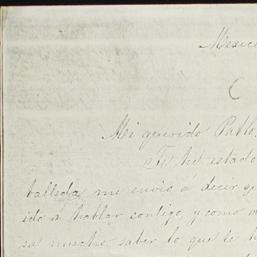 Mexico
C
Mi querido Pablo,
Te he estado
ballada, me envio a decir q
ido a hablar contigo, y como
sa mucho saber lo que te h